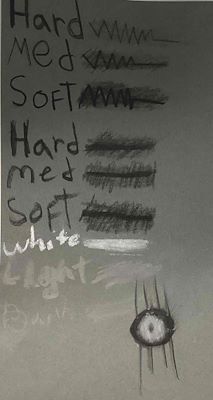 Hard
Med
Soft
Hard
med
Soft
white
Light